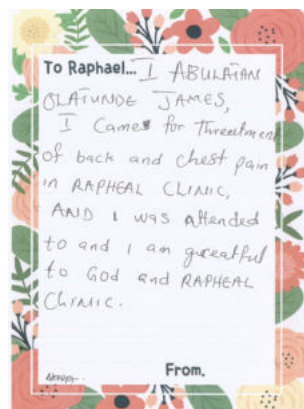 To Raphael... I ABULATAN
OLATUNDE JAMES,
I Came for Threetment
of back and chest pain
in RAPHEAL CLINIC,
AND I was attended
to and I am greatful
to God and RAPHEAL
CLINIC.
From,